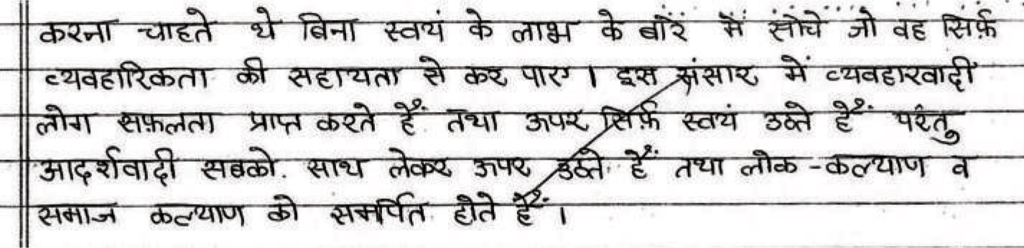 करना चाहते थे बिना स्वयं के लाभ के बारे में सोचे जो वह सिर्फ़
व्यवहारिकता की सहायता से कर पाए । इस संसार में व्यवहारवादी
लोग सफ़लता प्राप्त करते हैं तथा ऊपर सिर्फ़ स्वयं उठते हैं परंतु
आदर्शवादी सबको साथ लेकर ऊपर उठते हैं तथा लोक-कल्याण व
समाज कल्याण को समर्पित होते हैं ।